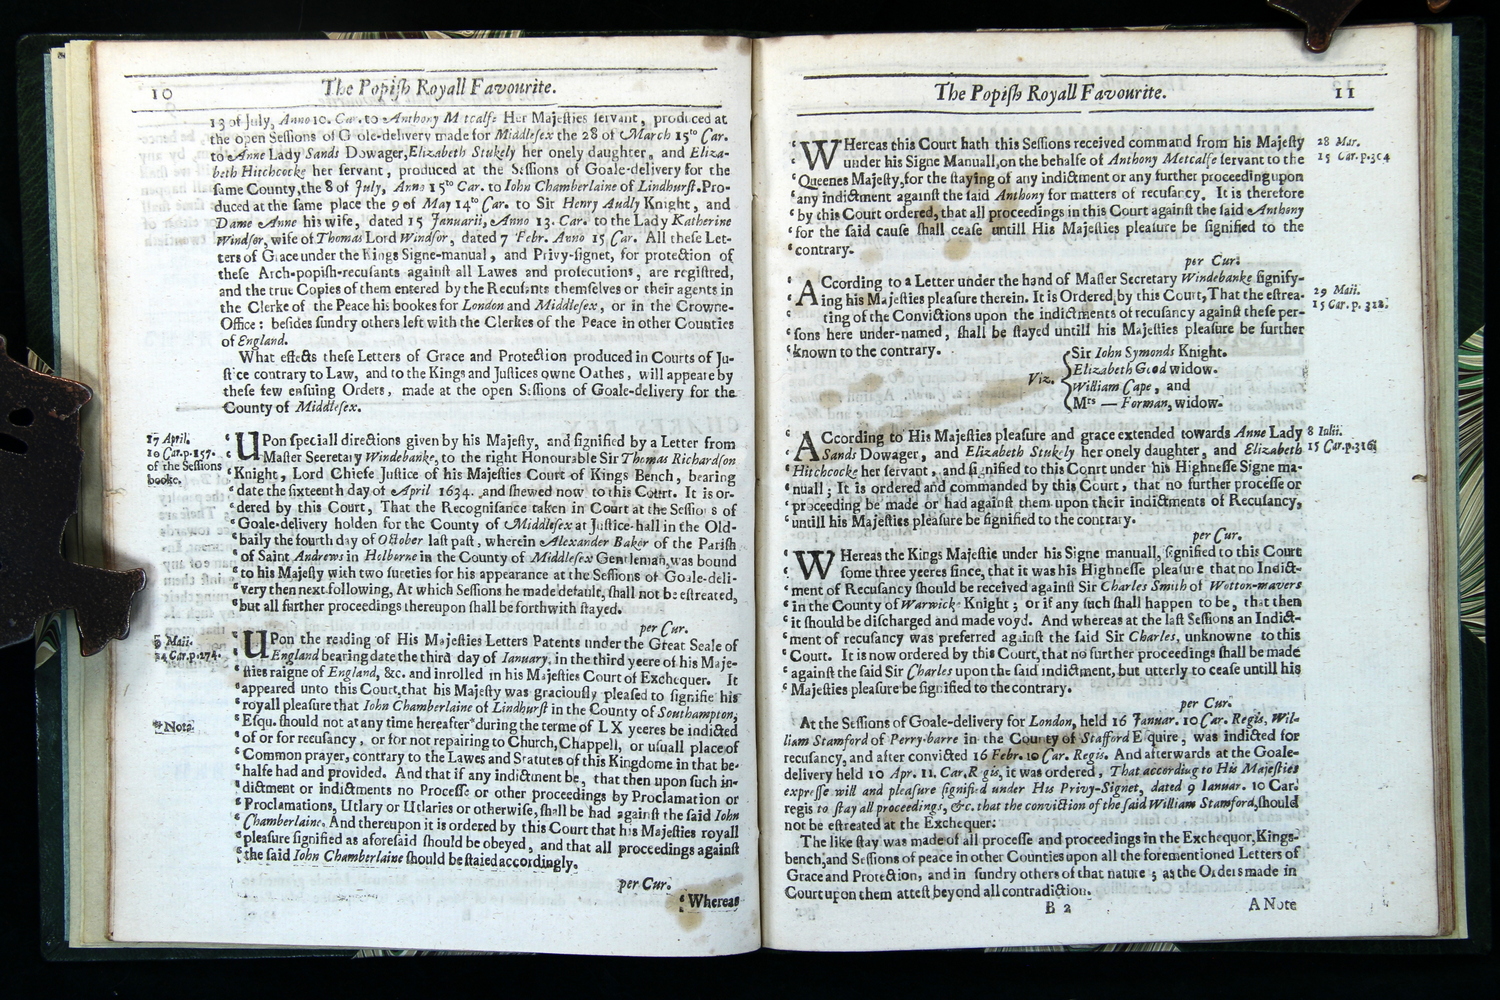 10
The Popiſh Royall Favourite.
13 of July, Anno 10. Car. to Anthony Metcalfe Her Majeſties ſervant, produced at
the open Seſſions of Goale-delivery made for Middleſex the 28 of March 15to Car.
to Anne Lady Sands Dowager, Elizabeth Stukely her onely daughter, and Eliza-
beth Hitchocke her ſervant, produced at the Seſſions of Goale-delivery for the
ſame County, the 8 of July, Anno 15to Car. to Iohn Chamberlaine of Lindhurſt. Pro-
duced at the ſame place the 9 of May 14to Car. to Sir Henry Audly Knight, and
Dame Anne his wife, dated 15 Januarii, Anno 13. Car. to the Lady Katherine
Windſor, wife of Thomas Lord Windſor, dated 7 Febr. Anno 15 Car. All theſe Let-
ters of Grace under the Kings Signe-manual, and Privy-ſignet, for protection of
theſe Arch-popiſh-recuſants againſt all Lawes and proſecutions, are regiſtred,
and the true Copies of them entered by the Recuſants themſelves or their agents in
the Clerke of the Peace his bookes for London and Middleſex, or in the Crowne-
Office: beſides ſundry others left with the Clerkes of the Peace in other Counties
of England.
What effects theſe Letters of Grace and Protection produced in Courts of Ju-
ſtice contrary to Law, and to the Kings and Juſtices owne Oathes, will appeare by
theſe few enſuing Orders, made at the open Seſſions of Goale-delivery for the
County of Middleſex.
17 April.
10 Car. p. 157.
of the Seſſions
booke.
‘UPon ſpeciall directions given by his Majeſty, and ſignified by a Letter from
‘Maſter Secretary Windebanke, to the right Honourable Sir Thomas Richardſon
‘Knight, Lord Chiefe Juſtice of his Majeſties Court of Kings Bench, bearing
‘date the ſixteenth day of April 1634. and ſhewed now to this Court. It is or-
‘dered by this Court, That the Recogniſance taken in Court at the Seſſions of
‘Goale-delivery holden for the County of Middleſex at Juſtice-hall in the Old-
‘baily the fourth day of October laſt paſt, wherein Alexander Baker of the Pariſh
‘of Saint Andrews in Holborne in the County of Middleſex Gentleman, was bound
‘to his Majeſty with two ſureties for his appearance at the Seſſions of Goale-deli-
‘very then next following, At which Seſſions he made default, ſhall not be eſtreated,
‘but all further proceedings thereupon ſhall be forthwith ſtayed.
per Cur.
9 Maii.
14 Car. p. 174.
‘UPon the reading of His Majeſties Letters Patents under the Great Seale of
‘England bearing date the third day of Ianuary, in the third yeere of his Maje-
‘ſties raigne of England, &c. and inrolled in his Majeſties Court of Exchequer. It
‘appeared unto this Court, that his Majeſty was graciouſly pleaſed to ſignifie his
‘royall pleaſure that Iohn Chamberlaine of Lindhurſt in the County of Southampton,
*Note.
‘Eſqu. ſhould not at any time hereafter *during the terme of LX yeeres be indicted
‘of or for recuſancy, or for not repairing to Church, Chappell, or uſuall place of
‘Common prayer, contrary to the Lawes and Statutes of this Kingdome in that be-
‘halfe had and provided. And that if any indictment be, that then upon ſuch in-
‘dictment or indictments no Proceſſe or other proceedings by Proclamation or
‘Proclamations, Utlary or Utlaries or otherwiſe, ſhall be had againſt the ſaid Iohn
‘Chamberlaine. And thereupon it is ordered by this Court that his Majeſties royall
‘pleaſure ſignified as aforeſaid ſhould be obeyed, and that all proceedings againſt
‘the ſaid Iohn Chamberlaine ſhould be ſtaied accordingly.
per Cur.
‘Whereas
The Popiſh Royall Favourite.
11
‘WHereas this Court hath this Seſſions received command from his Majeſty
28 Mar.
‘under his Signe Manuall, on the behalfe of Anthony Metcalfe ſervant to the
15 Car. p. 304
‘Queenes Majeſty, for the ſtaying of any indictment or any further proceeding upon
‘any indictment againſt the ſaid Anthony for matters of recuſancy. It is therefore
‘by this Court ordered, that all proceedings in this Court againſt the ſaid Anthony
‘for the ſaid cauſe ſhall ceaſe untill His Majeſties pleaſure be ſignified to the
‘contrary.
per Cur.
‘ACcording to a Letter under the hand of Maſter Secretary Windebanke ſignify-
‘ing his Majeſties pleaſure therein. It is Ordered by this Court, That the eſtrea-
29 Maii.
‘ting of the Convictions upon the indictments of recuſancy againſt theſe per-
15 Car. p. 312.
‘ſons here under-named, ſhall be ſtayed untill his Majeſties pleaſure be further
‘known to the contrary.
Viz.
Sir Iohn Symonds Knight.
Elizabeth Good widow.
William Cape, and
Mrs — Forman, widow.
‘ACcording to His Majeſties pleaſure and grace extended towards Anne Lady
8 Iulii.
‘Sands Dowager, and Elizabeth Stukely her onely daughter, and Elizabeth
15 Car. p. 316.
‘Hitchcocke her ſervant, and ſignified to this Court under his Highneſſe Signe ma-
‘nuall; It is ordered and commanded by this Court, that no further proceſſe or
‘proceeding be made or had againſt them upon their indictments of Recuſancy,
‘untill his Majeſties pleaſure be ſignified to the contrary.
per Cur.
‘WHereas the Kings Majeſtie under his Signe manuall, ſignified to this Court
‘ſome three yeeres ſince, that it was his Highneſſe pleaſure that no Indict-
‘ment of Recuſancy ſhould be received againſt Sir Charles Smith of Wotton-wavers
‘in the County of Warwicke Knight; or if any ſuch ſhall happen to be, that then
‘it ſhould be diſcharged and made voyd. And whereas at the laſt Seſſions an Indict-
‘ment of recuſancy was preferred againſt the ſaid Sir Charles, unknowne to this
‘Court. It is now ordered by this Court, that no further proceedings ſhall be made
‘againſt the ſaid Sir Charles upon the ſaid indictment, but utterly to ceaſe untill his
‘Majeſties pleaſure be ſignified to the contrary.
per Cur.
At the Seſſions of Goale-delivery for London, held 16 Januar. 10 Car. Regis, Wil-
liam Stamford of Perry-barre in the County of Stafford Eſquire, was indicted for
recuſancy, and after convicted 16 Febr. 10 Car. Regis. And afterwards at the Goale-
delivery held 10 Apr. 11. Car. Regis, it was ordered, That according to His Majeſties
expreſſe will and pleaſure ſignified under His Privy-Signet, dated 9 Ianuar. 10 Car.
regis to ſtay all proceedings, &c. that the conviction of the ſaid William Stamford, ſhould
not be eſtreated at the Exchequer.
The like ſtay was made of all proceſſe and proceedings in the Exchequor, Kings-
bench, and Seſſions of peace in other Counties upon all the forementioned Letters of
Grace and Protection, and in ſundry others of that nature; as the Orders made in
Court upon them atteſt beyond all contradiction.
B 2
A Note